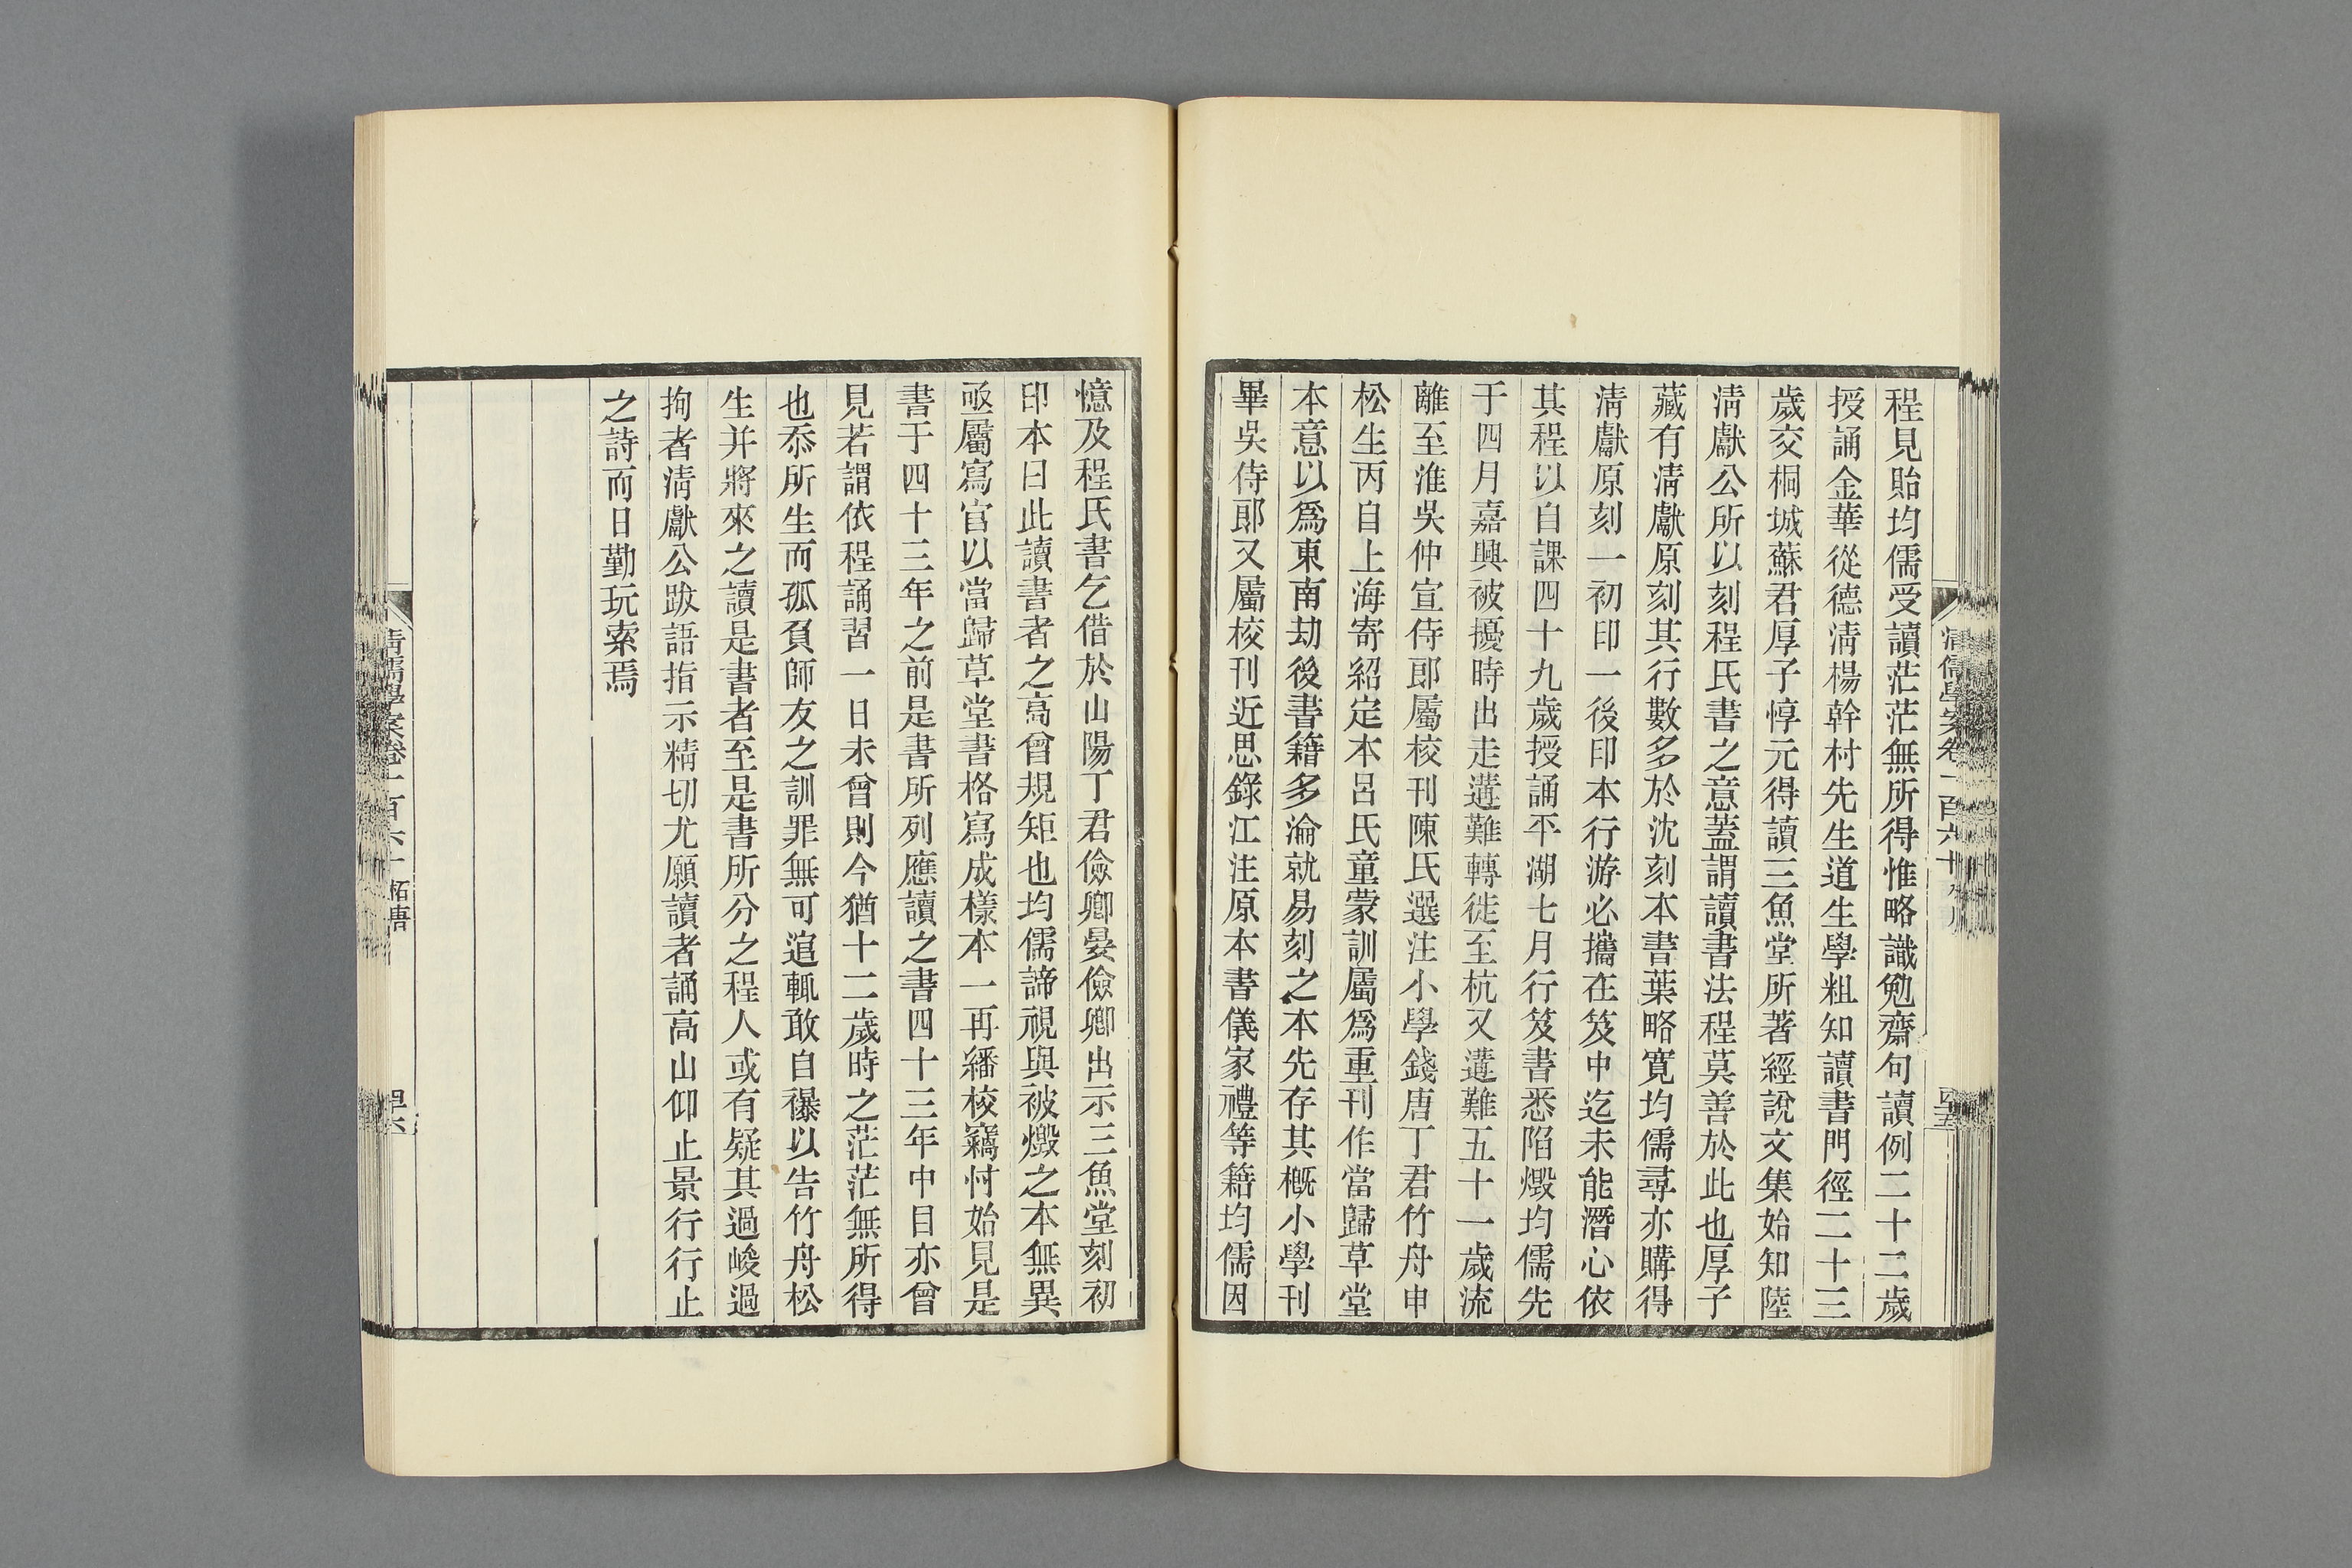 程見貽均儒受讀茫茫無所得惟略識勉齋句讀例二十二歲
授誦金華從德淸楊幹村先生道生學粗知讀書門徑二十三
歲交桐城蘇君厚子惇元得讀三魚堂所著經說文集始知陸
淸獻公所以刻程氏書之意蓋謂讀書法程莫善於此也厚子
藏有淸獻原刻其行數多於沈刻本書葉略寬均儒尋亦購得
淸獻原刻一初印一後印本行游必攜在笈中迄未能潛心依
其程以自課四十九歲授誦平湖七月行笈書悉陷燬均儒先
于四月嘉興被擾時出走遘難轉徙至杭又遘難五十一歲流
離至淮吳仲宣侍郎屬校刊陳氏選注小學錢唐丁君竹舟申
松生丙自上海寄紹定本呂氏童蒙訓屬爲重刊作當歸草堂
本意以爲東南劫後書籍多淪就易刻之本先存其槪小學刊
畢吳侍郎又屬校刊近思錄江注原本書儀家禮等籍均儒因
憶及程氏書乞借於山陽丁君儉卿晏儉卿出示三魚堂刻初
印本曰此讀書者之高曾規矩也均儒諦視與被燬之本無異
亟屬寫官以當歸草堂書格寫成樣本一再繙校竊忖始見是
書于四十三年之前是書所列應讀之書四十三年中目亦曾
見若謂依程誦習一日未曾則今猶十二歲時之茫茫無所得
也忝所生而孤負師友之訓罪無可逭輒敢自襮以告竹舟松
生并將來之讀是書者至是書所分之程人或有疑其過峻過
拘者淸獻公跋語指示精切尤願讀者誦高山仰止景行行止
之詩而日勤玩索焉